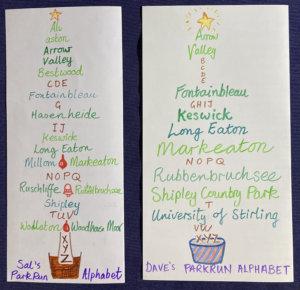 Alv
aston
Arrow
Valley
Bestwood
CDE
Fontainbleau
G
Hasenheide
IJ
Keswick
Long Eaton
Millom Markeaton
NOPQ
Rushcliffe
Shipley
TUV
Wollaton Woodhouse Moor
XY
Z
Sal's
ParkRun Alphabet
Arrow
Valley
B
C
D
E
Fontainbleau
GHIJ
Keswick
Long Eaton
Markeaton
NOPQ
Rubbenbruchsee
Shipley Country Park
T
University of Stirling
VW
XYZ
DAVE'S PARKRUN ALPHABET